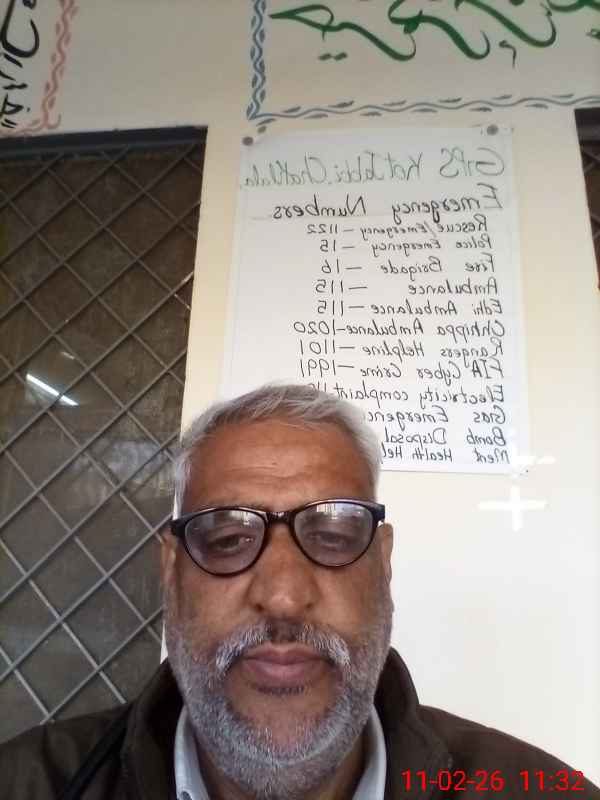 GPS Kot Jabbi, Chaklala.
Emergency Numbers
Rescue/Emergency - 1122
Police Emergency - 15
Fire Brigade - 16
Ambulance - 115
Edhi Ambulance - 115
Chhippa Ambulance - 1020
Rangers Helpline - 1101
FIA Cyber Crime - 1991
Electricity complaint 11
Gas Emergenc
Bomb Disposal
Ment Health Hel
11-02-26 11:32